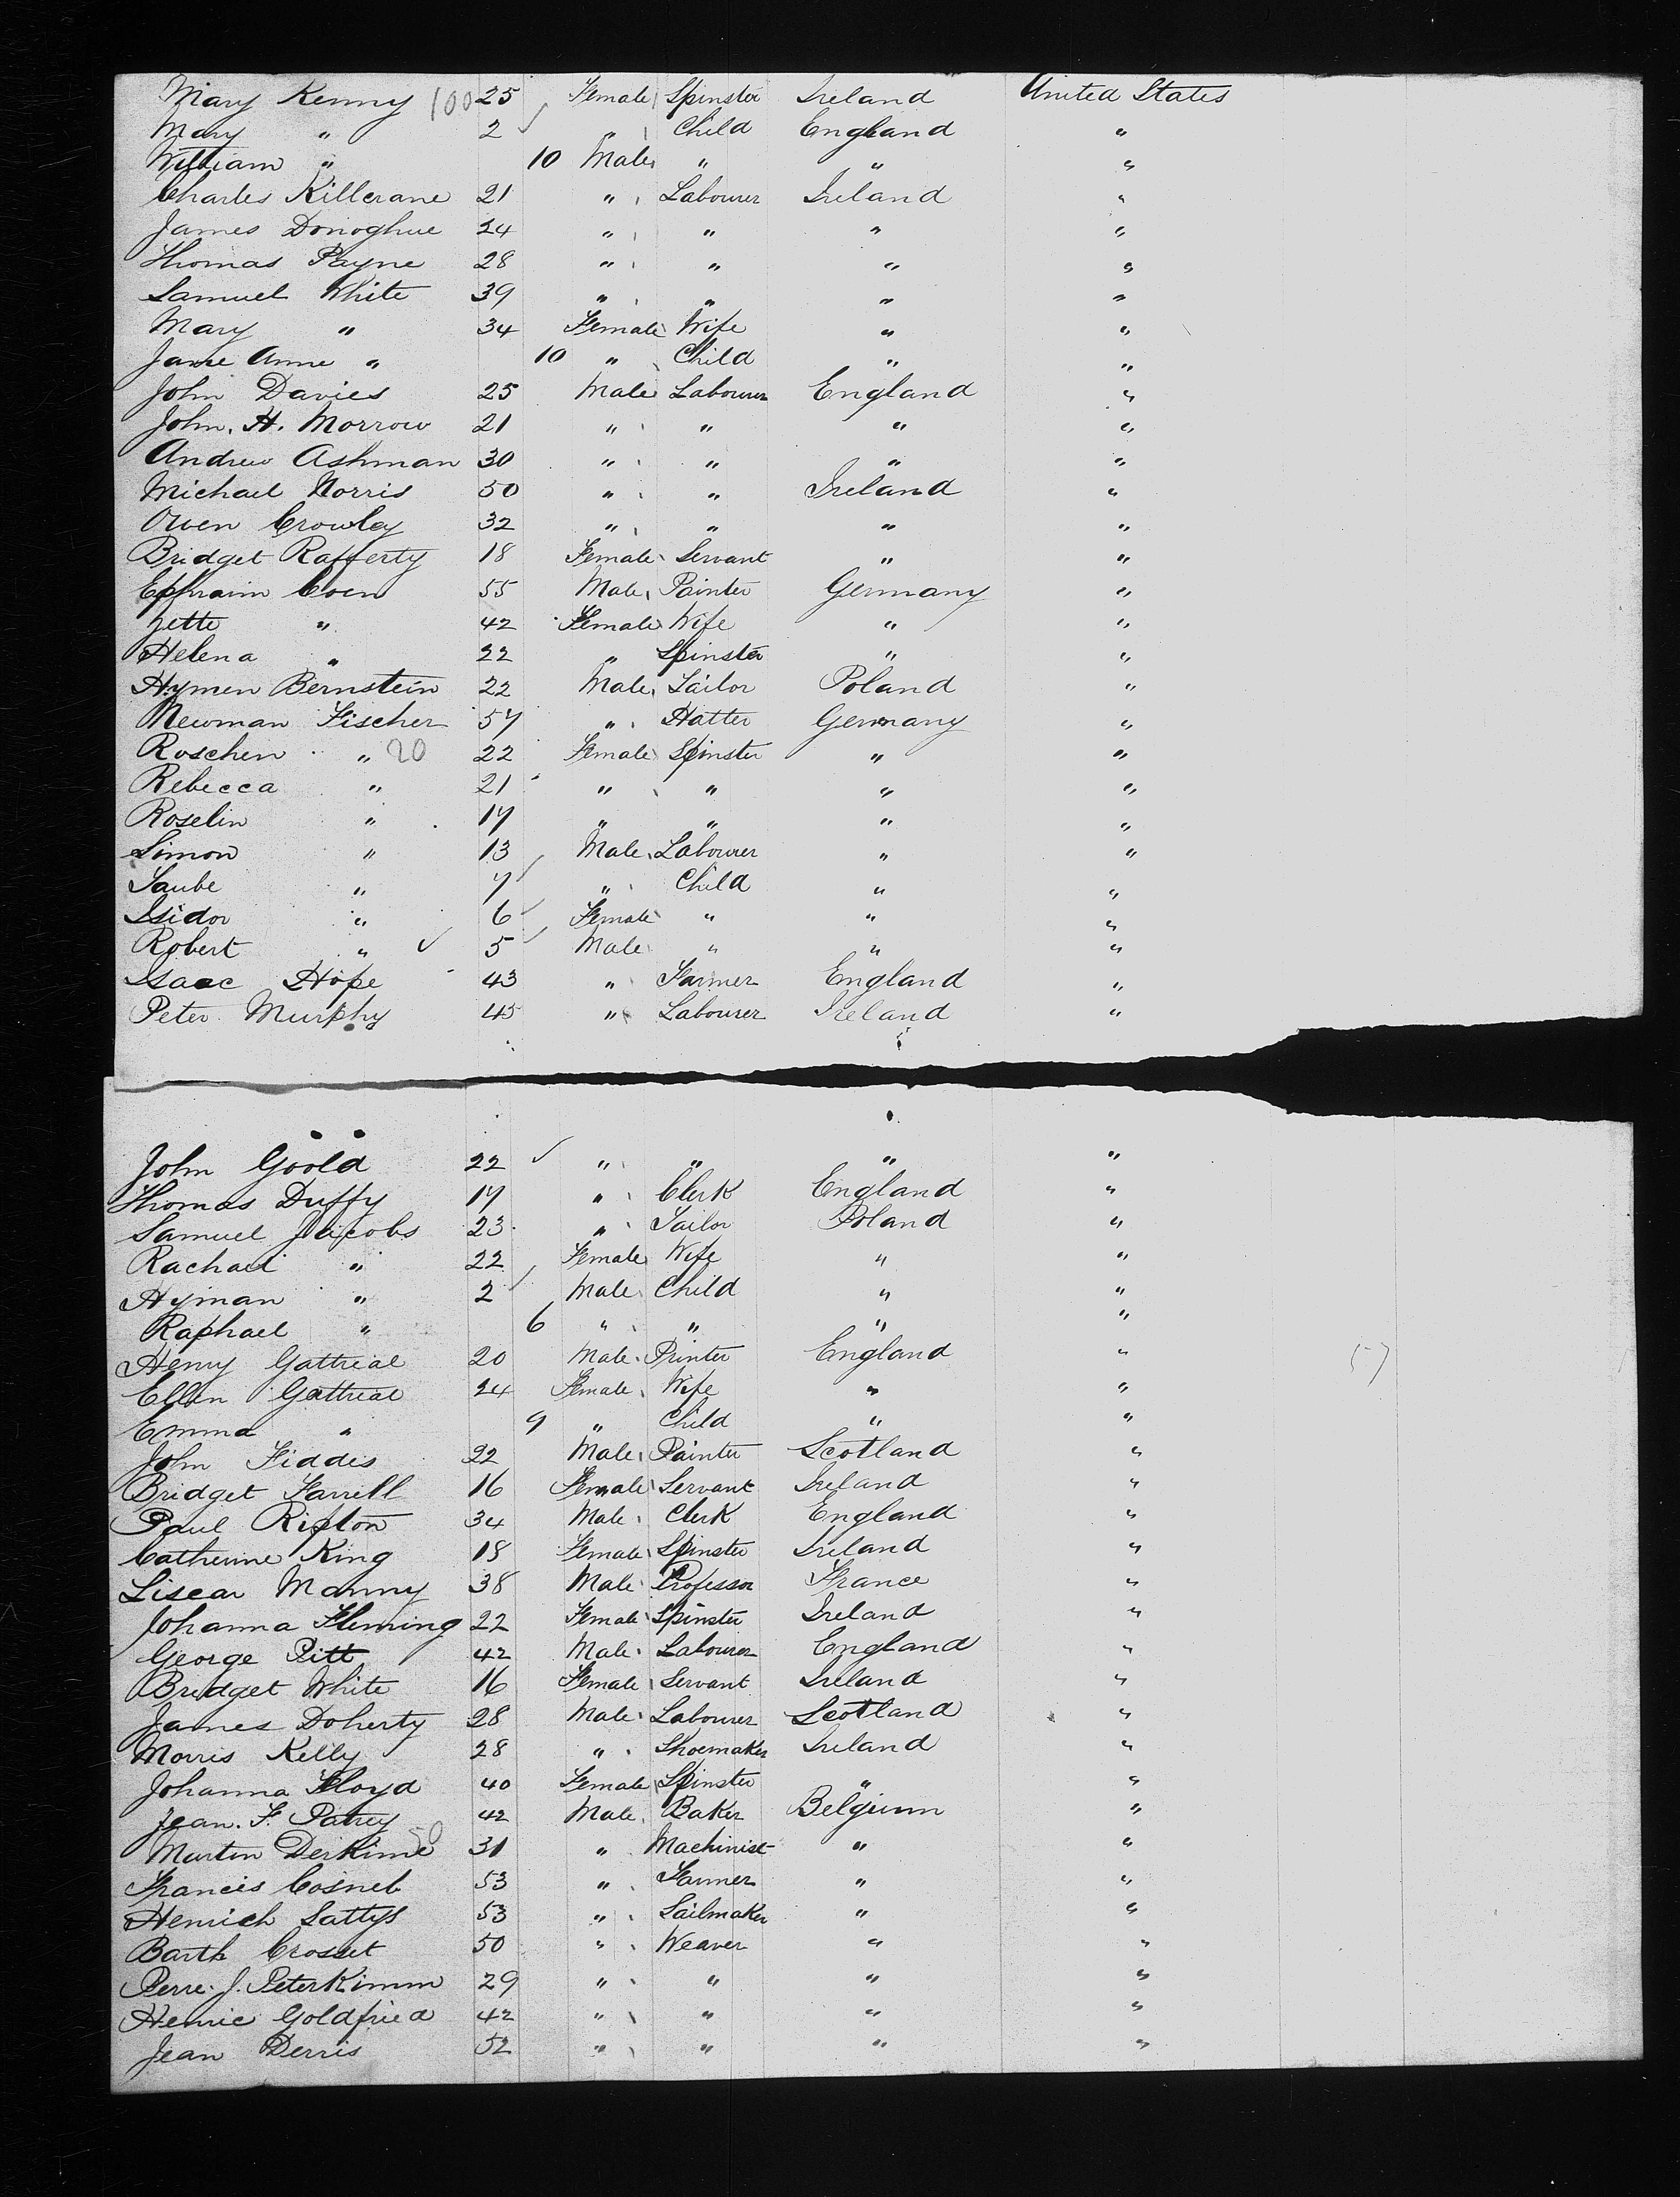 Mary Kenny 100 25 Female Spinster Ireland United States
Mary " 2 " Child England "
William " 10 Male " " "
Charles Killcrane 21 " Labourer Ireland "
James Donoghue 24 " " " "
Thomas Payne 28 " " " "
Samuel White 39 " " " "
Mary " 34 Female Wife " "
Jane Anne " 10 " Child " "
John Davies 25 Male Labourer England "
John. H. Morrow 21 " " " "
Andrew Ashman 30 " " " "
Michael Norris 50 " " Ireland "
Owen Crowley 32 " " " "
Bridget Rafferty 18 Female Servant " "
Ephraim Coen 55 Male Painter Germany "
Zette " 42 Female Wife " "
Helena " 22 " Spinster " "
Hymen Bernstein 22 Male Tailor Poland "
Newman Fischer 57 " Hatter Germany "
Roschen " 20 22 Female Spinster " "
Rebecca " 21 " " " "
Roselin " 17 " " " "
Simon " 13 Male Labourer " "
Taube " 7 " Child " "
Isidor " 6 Female " " "
Robert " 5 Male " " "
Isaac Hope 43 " Farmer England "
Peter Murphy 45 " Labourer Ireland "
John Goold 22 " " " "
Thomas Duffy 17 " Clerk England "
Samuel Jacobs 23 " Tailor Poland "
Rachael " 22 Female Wife " "
Hyman " 2 Male Child " "
Raphael " 6 " " " "
Henry Gattreal 20 Male Printer England " 57
Ellen Gattreal 24 Female Wife " "
Emma " 9 " Child " "
John Fiddis 22 Male Painter Scotland "
Bridget Farrell 16 Female Servant Ireland "
Paul Ripton 34 Male Clerk England "
Catherine King 18 Female Spinster Ireland "
Liscar Manny 38 Male Professor France "
Johanna Fleming 22 Female Spinster Ireland "
George Pitt 42 Male Labourer England "
Bridget White 16 Female Servant Ireland "
James Doherty 28 Male Labourer Scotland "
Morris Kelly 28 " Shoemaker Ireland "
Johanna Floyd 40 Female Spinster " "
Jean. F. Patrey 42 Male Baker Belgium "
Martin Derkime 50 31 " Machinist " "
Francis Cosneb 53 " Farmer " "
Henrich Sattys 53 " Sailmaker " "
Barth Crosset 50 " Weaver " "
Perre. J. Peterkimm 29 " " " "
Henric Goldfried 42 " " " "
Jean Derris 52 " " " "